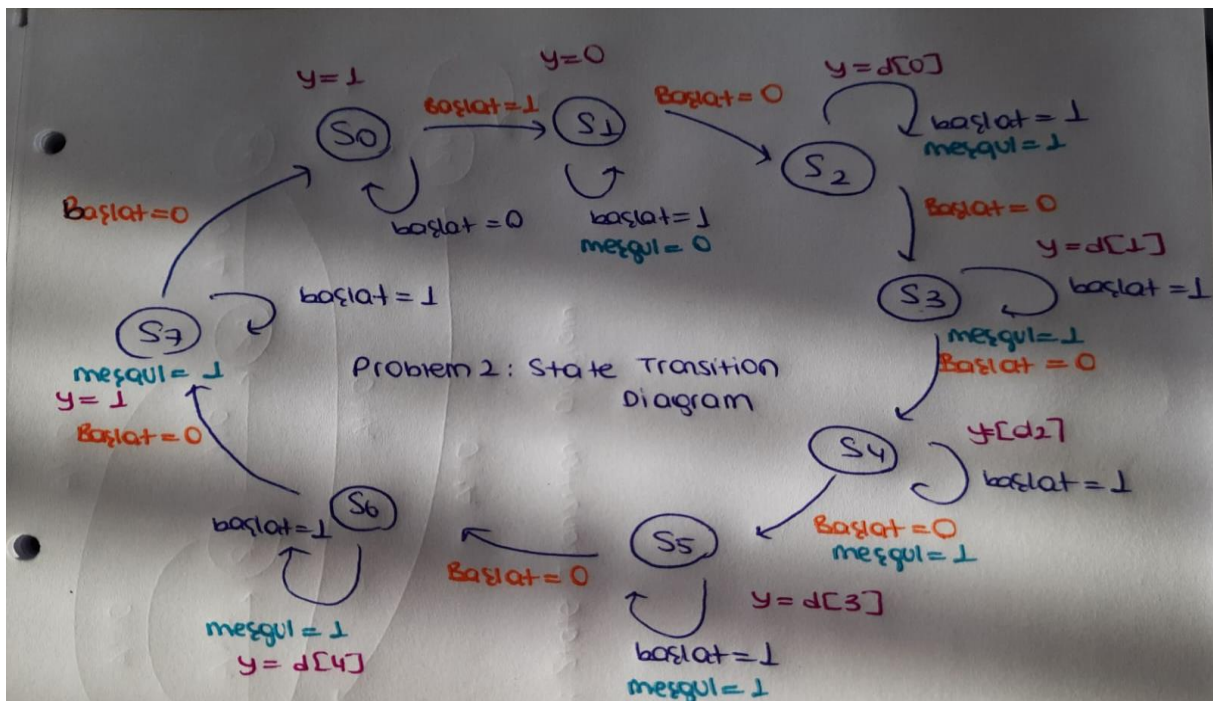 y=1
S0
Başlat=1
y=0
S1
Başlat=0
y=d[0]
S2
başlat=1
meşgul=1
başlat=0
başlat=1
meşgul=0
Başlat=0
Başlat=0
y=d[1]
S3
başlat=1
meşgul=1
Başlat=0
S7
başlat=1
meşgul=1
y=1
Başlat=0
Problem 2: State Transition
Diagram
S4
y=[d2]
başlat=1
Başlat=0
meşgul=1
S6
başlat=1
meşgul=1
y=d[4]
Başlat=0
S5
y=d[3]
başlat=1
meşgul=1